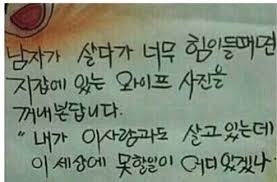 남자가 살다가 너무 힘이들때면
지갑에 있는 와이프 사진을
꺼내본답니다.
"내가 이사람과도 살고있는데
이 세상에 못할일이 어디있겠나